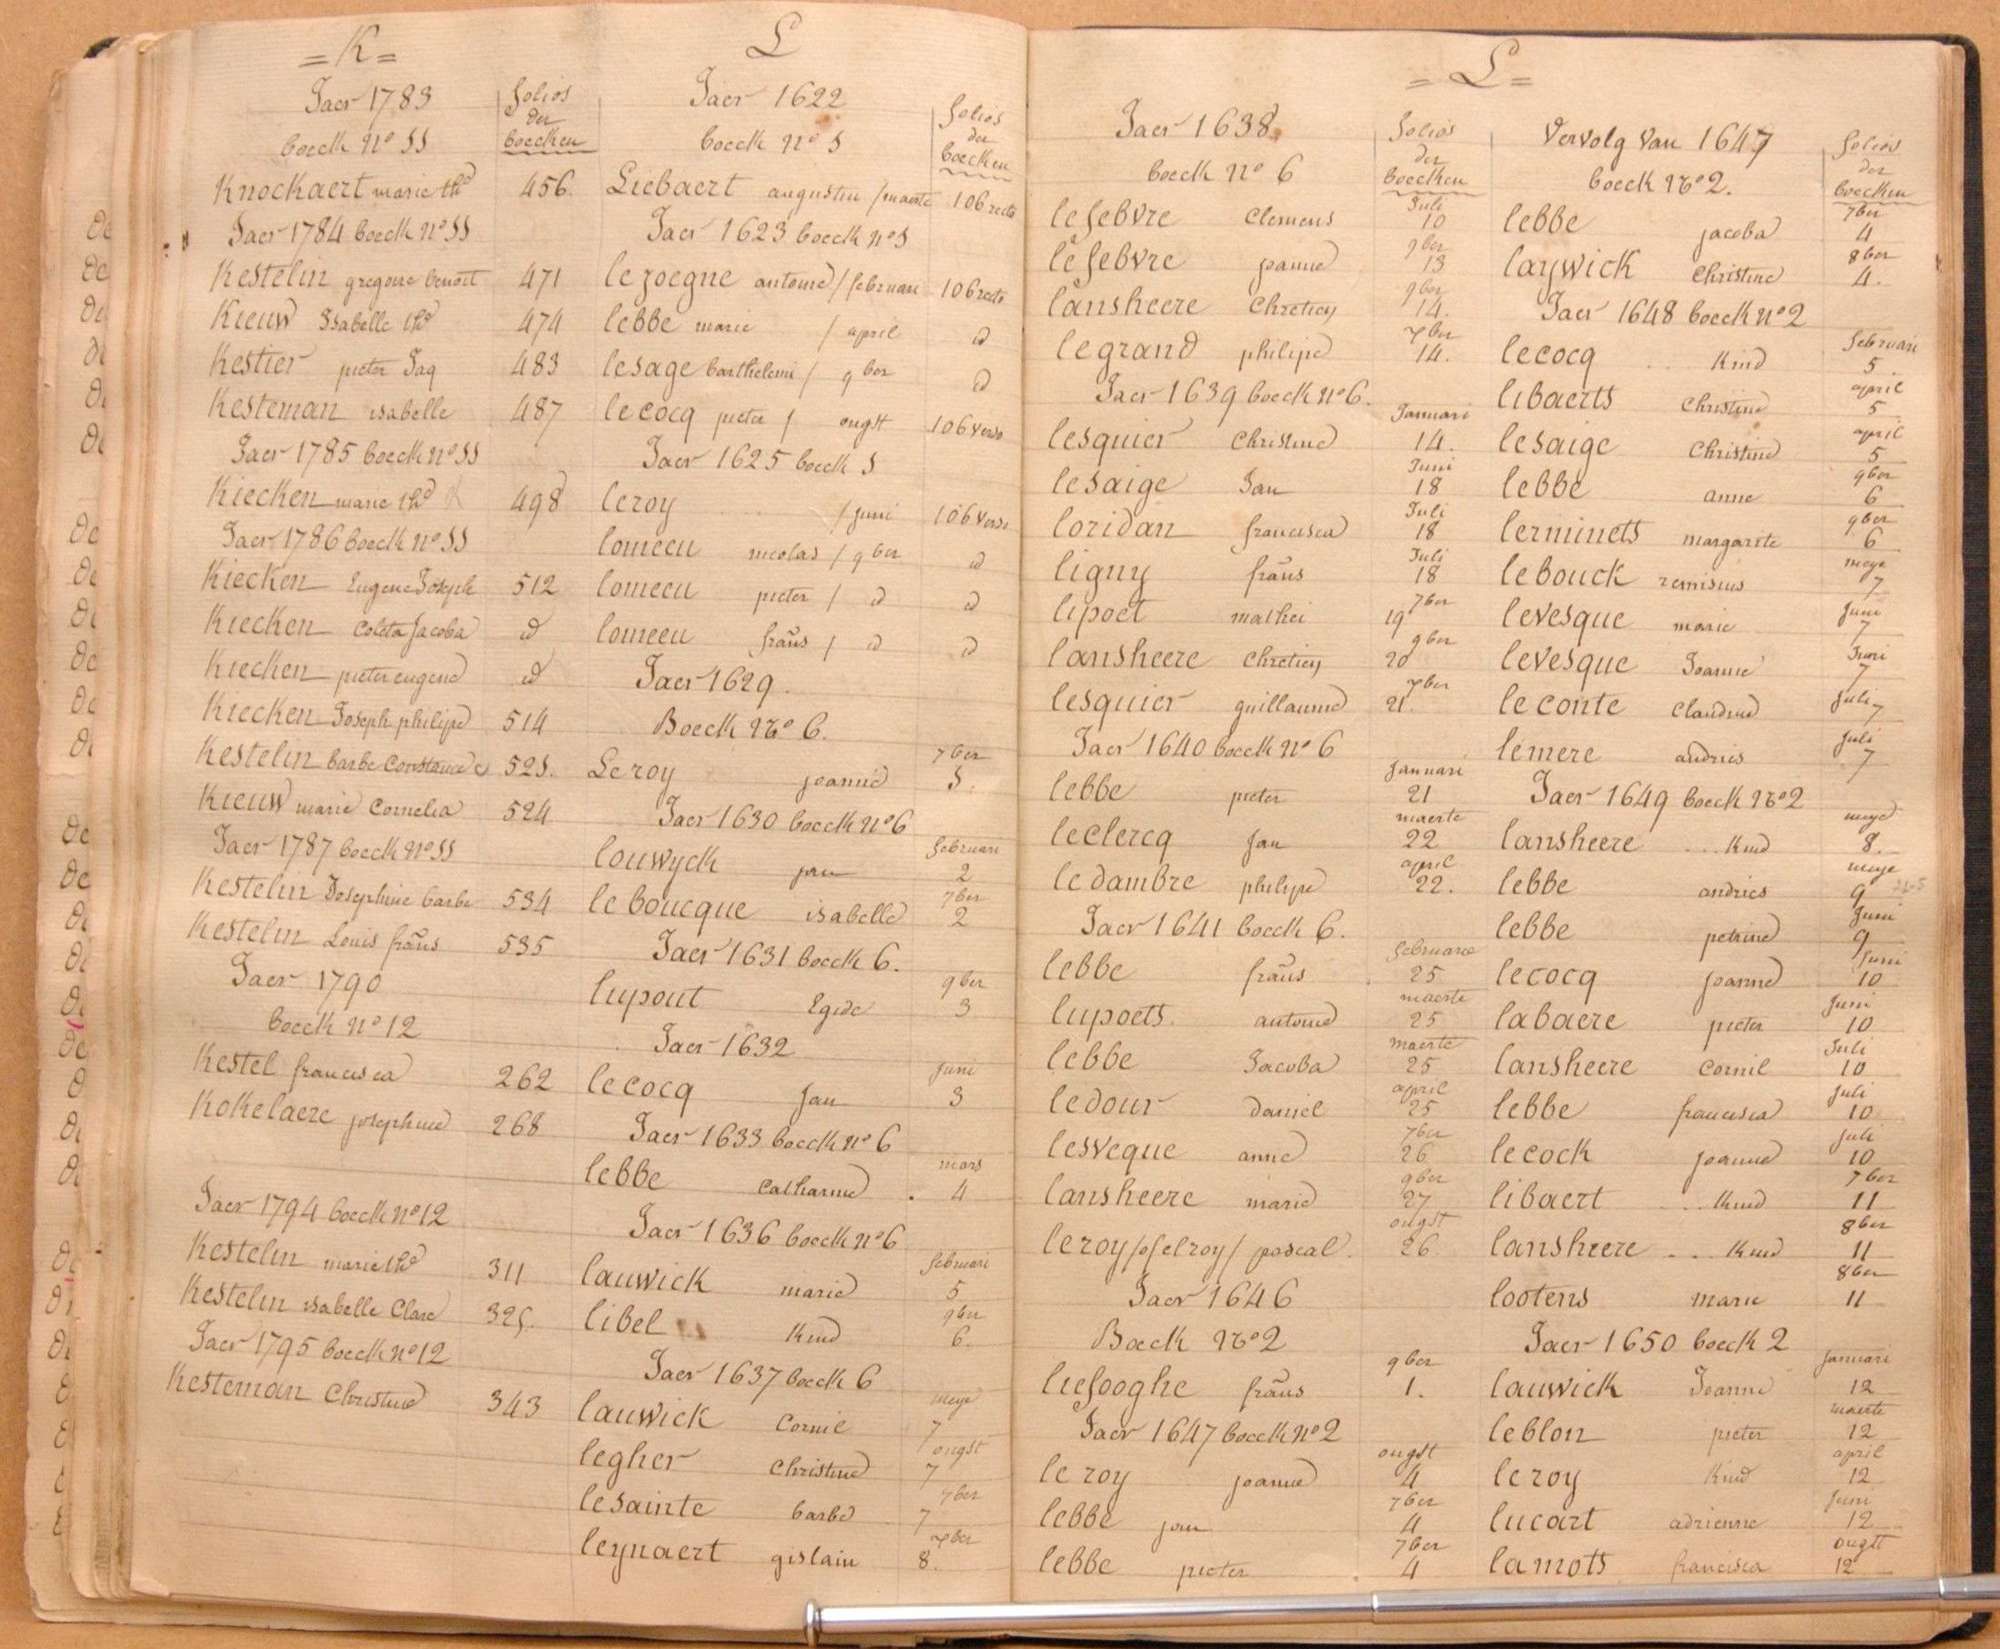 = K =
Jaer 1783
folios
der
boecken
boeck No 11
Knockaert marie thd 456.
Jaer 1784 boeck no 11
Kestelin gregoire benoit 471
Kieuw Isabelle thd 474
Kestier pieter Jaq 483
Kesteman isabelle 487
Jaer 1785 boeck no 11
Kiecken marie thd 498
Jaer 1786 boeck no 11
Kiecken Eugene Joseph 512
Kiecken Coleta Jacoba id
Kiecken pieter eugene id
Kiecken Joseph philipe 514
Kestelin barbe Constance 521.
Kieuw marie Cornelia 524
Jaer 1787 boeck no 11
Kestelin Josephine barbe 534
Kestelin Louis frans 535
Jaer 1790
boeck no 12
Kestel francisca 262
Kokelaere josephine 268
Jaer 1794 boeck no 12
Kestelin marie thd 311
Kestelin isabelle Clare 325.
Jaer 1795 boeck no 12
Kesteman Christine 343
L
Jaer 1622
folios
der
boecken
boeck no 1
Liebaert augustin / maerte 106 recto
Jaer 1623 boeck no 1
antoine / februari 106 recto
lebbe marie / april id
lesage barthelemi / 9ber id
lecocq pieter / ougst 106 verso
Jaer 1625 boeck 1
leroy / juni 106 verso
lomeeu nicolas / 9ber id
lomeeu pieter / id id
lomeeu frans / id id
Jaer 1629.
Boeck No 6.
7ber
Le roy joanne 1.
Jaer 1630 boeck no 6
februari
louwyck jan 2
7ber
le boucque isabelle 2
Jaer 1631 boeck 6.
9ber
lupout Egide 3
Jaer 1632
juni
lecocq Jan 3
Jaer 1633 boeck no 6
mars
lebbe Catharine . 4
Jaer 1636 boeck no 6
februari
lauwick marie 5
9ber
libel Kind 6.
Jaer 1637 boeck 6
meye
lauwick Cornil 7
ougst
legher Christine 7
7ber
lesainte barbe 7
7ber
leynaert gislain 8.
= L =
Jaer 1638
folios
der
boecken
boeck no 6
Juli
lefebvre Clemens 10
9ber
lefebvre joanne 13
9ber
lansheere Chretien 14.
7ber
legrand philipe 14.
Jaer 1639 boeck no 6.
Januari
lesquier Christine 14.
Juni
lesaige Jan 18
Juli
loridan francisca 18
Juli
ligny frans 18
7ber
lipoet mathei 19
9ber
lansheere Chretien 20
7ber
lesquier guillaume 21.
Jaer 1640 boeck no 6
Januari
lebbe pieter 21
maerte
leclercq Jan 22
april
ledambre philipe 22.
Jaer 1641 boeck 6.
februari
lebbe frans . 25
maerte
lupoets antoine 25
maerte
lebbe Jacoba 25
april
ledour daniel 25
7ber
lesveque anne 26
9ber
lansheere marie 27
ougst
leroy /of elroy/ pascal. 26
Jaer 1646
Boeck No 2
9ber
liefooghe frans 1.
Jaer 1647 boeck no 2
ougst
le roy joanne 4
7ber
lebbe jan 4
7ber
lebbe pieter . 4
Vervolg Van 1647
folios
der
boecken
boeck No 2.
7ber
lebbe jacoba 4
8ber
laywick Christine 4.
Jaer 1648 boeck no 2
februari
lecocq .. Kind 5
april
libaerts Christine 5
april
lesaige Christine 5
9ber
lebbe anne 6
9ber
lerminets margarite 6
meye
lebouck remisius 7
Juni
levesque marie 7
Juni
levesque Joanne 7
Juli
leconte Claudine 7
Juli
lemere andries 7
Jaer 1649 boeck No 2
meye
lansheere ... Kind 8.
meye
lebbe andries 9
Juni
lebbe petrine 9
Juni
lecocq joanne 10
Juni
labaere pieter 10
Juli
lansheere Cornil 10
Juli
lebbe francisca 10
Juli
lecock joanne 10
7ber
libaert ... Kind 11
8ber
lansheere ... Kind 11
8ber
lootens marie 11
Jaer 1650 boeck 2
Januari
lauwick Joanne 12
maerte
leblon pieter 12
april
le roy Kind 12
Juni
lucart adrienne 12
ougst
lamots francisca 12